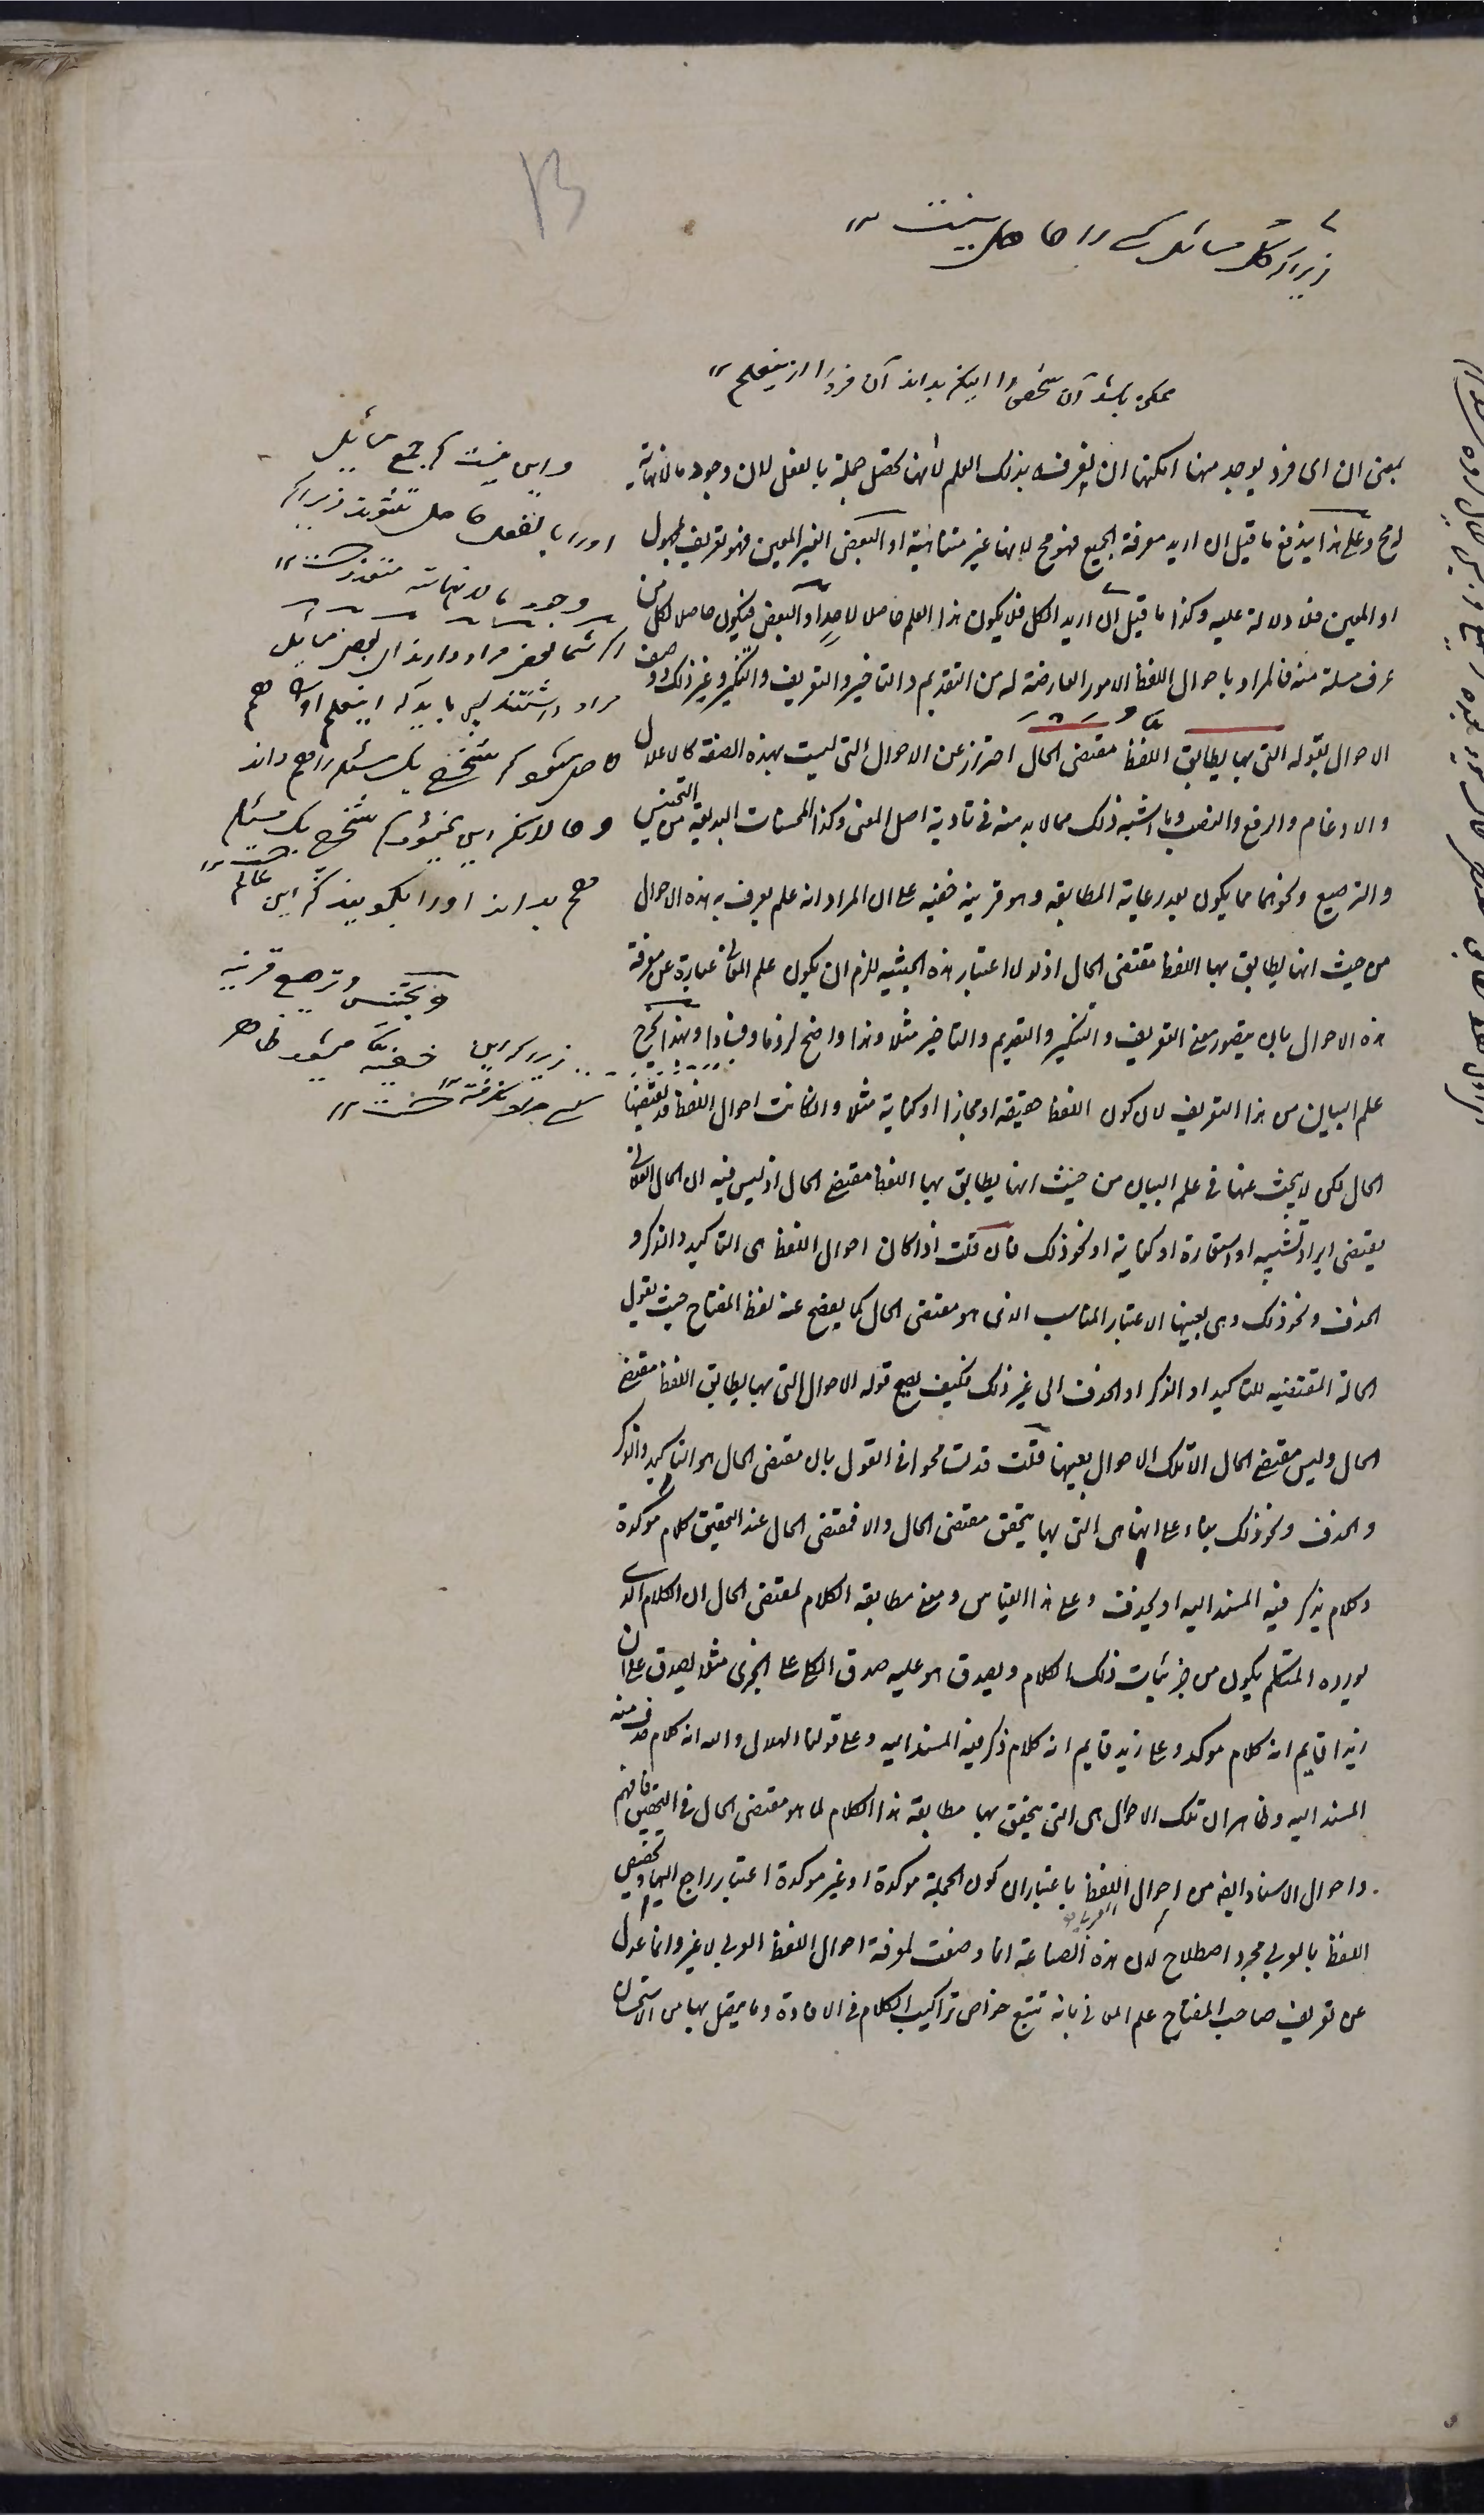 زیرا که کل مسائل کسے را حاصل نیست
ممکن باشد آن شخص را اینکه بداند آن فرد را ازینعلم
بمعنى ان اى فرد يوجد منها امكننا ان نعرفه بذلك العلم لا انها تحصل جملة بالفعل لان وجود ما لا نهاية
له مح وعلى هذا يندفع ما قيل ان اريد معرفة الجميع فهو مح لانها غير متناهية او البعض الغير المعين فهو تعريف بمجهول
او المعين فلا دلالة عليه وكذا ما قيل ان اريد الكل فلا يكون هذا العلم حاصلا لاحد او البعض فيكون حاصلا لكل من
عرف مسئلة منه فالمراد باحوال اللفظ الامور العارضة له من التقديم والتاخير والتعريف والتنكير وغير ذلك ووصف
الاحوال بقوله التى بها يطابق اللفظ مقتضى الحال احتراز عن الاحوال التى ليست بهذه الصفة كالاعلال
والادغام والرفع والنصب وما اشبه ذلك مما لا بد منه فى تادية اصل المعنى وكذا المحسنات البديعة من التجنيس
والترصيع ونحوهما مما يكون بعد رعاية المطابقه وهو قرينه خفيه على ان المراد انه علم يعرف به هذه الاحوال
من حيث انها يطابق بها اللفظ مقتضى الحال اذ لولا اعتبار هذه الحيثيه للزم ان يكون علم المعانى عبارة عن معرفة
هذه الاحوال بان يتصور معنى التعريف والتنكير والتقديم والتاخير مثلا وهذا واضح لزوما وفسادا وبهذا يخرج
علم البيان من هذا التعريف لان كون اللفظ حقيقه او مجازا او كناية مثلا وان كانت احوال اللفظ قد يقتضيها
الحال لكن لا يبحث عنها فى علم البيان من حيث انها يطابق بها اللفظ مقتضى الحال اذ ليس فيه ان الحال الفلانى
يقتضى ايراد تشبيه او استعارة او كناية او نحو ذلك فان قلت اذا كان احوال اللفظ هى التاكيد والذكر و
الحذف ونحو ذلك وهى بعينها الاعتبار المناسب الذى هو مقتضى الحال كما يفصح عنه لفظ المفتاح حيث يقول
الحالة المقتضيه للتاكيد او الذكر او الحذف الى غير ذلك فكيف يصح قوله الاحوال التى بها يطابق اللفظ مقتضى
الحال وليس مقتضى الحال الا تلك الاحوال بعينها قلت قد تسامحوا فى القول بان مقتضى الحال هو التاكيد والذكر
والحذف ونحو ذلك بناء على انها هى التى بها يتحقق مقتضى الحال والا فمقتضى الحال عند التحقيق كلام موكدة
وكلام يذكر فيه المسند اليه او يحذف وعلى هذا القياس ومعنى مطابقه الكلام لمقتضى الحال ان الكلام الذى
يورده المتكلم يكون من جزئيات ذلك الكلام ويصدق هو عليه صدق الكلى على الجزئى مثلا يصدق على ان
زيدا قايم انه كلام موكد وعلى زيد قايم انه كلام ذكر فيه المسند اليه وعلى قولنا الهلال والله انه كلام حذف منه
المسند اليه وظاهر ان تلك الاحوال هى التى يتحقق بها مطابقة هذا الكلام لما هو مقتضى الحال فى التحقيق فافهم
واحوال الاسناد ايضه من احوال اللفظ باعتبار ان كون الجملة موكدة او غير موكدة اعتبار راجع اليها وتخصيص
اللفظ بالعربى مجرد اصطلاح لان هذه الصناعة انما وضعت لمعرفة احوال اللفظ العربى لا غير وانما عدل
عن تعريف صاحب المفتاح علم المعانى بانه تتبع خواص تراكيب الكلام فى الافادة وما يتصل بها من الاستحسان
و این نیست که جمیع مسائل
اورا بالفعل حاصل شوند زیرا که
وجود مالانهایته متعذرست
اگر شما بعض مراد دارند ای بعض مسائل
مراد داشتند پس باید که اینعلم اورا هم
حاصل شود که شخص یک مسئله را هم داند
و حالانکه این نمیشود که شخص یک مسئله
هم بداند اورا بگویند که این عالم است
و تجنیس و ترصیع قرینه
زیرا که این خفیه میشود ظاهر
کسے مراد نگرفته است